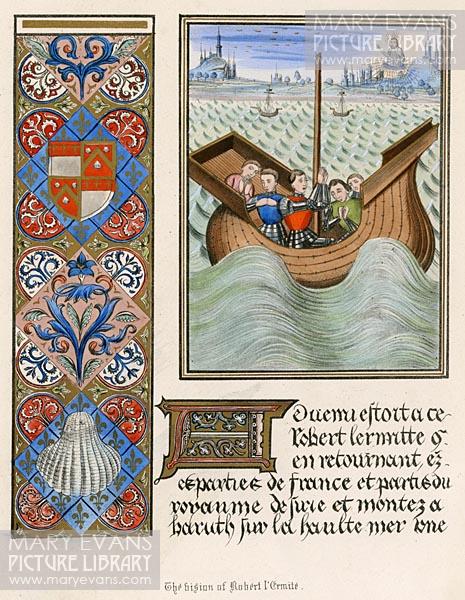 MARY EVANS
PICTURE LIBRARY
www.maryevans.com
Aduenu estoit a ce
Robert lermitte q̃
en retournant ez̃
es parties de france et partis du
royaume de sirie et montez a
baruth sur la haulte mer une
MARY EVANS
PICTURE LIBRARY
www.maryevans.com
The Vision of Robert l'Ermite.